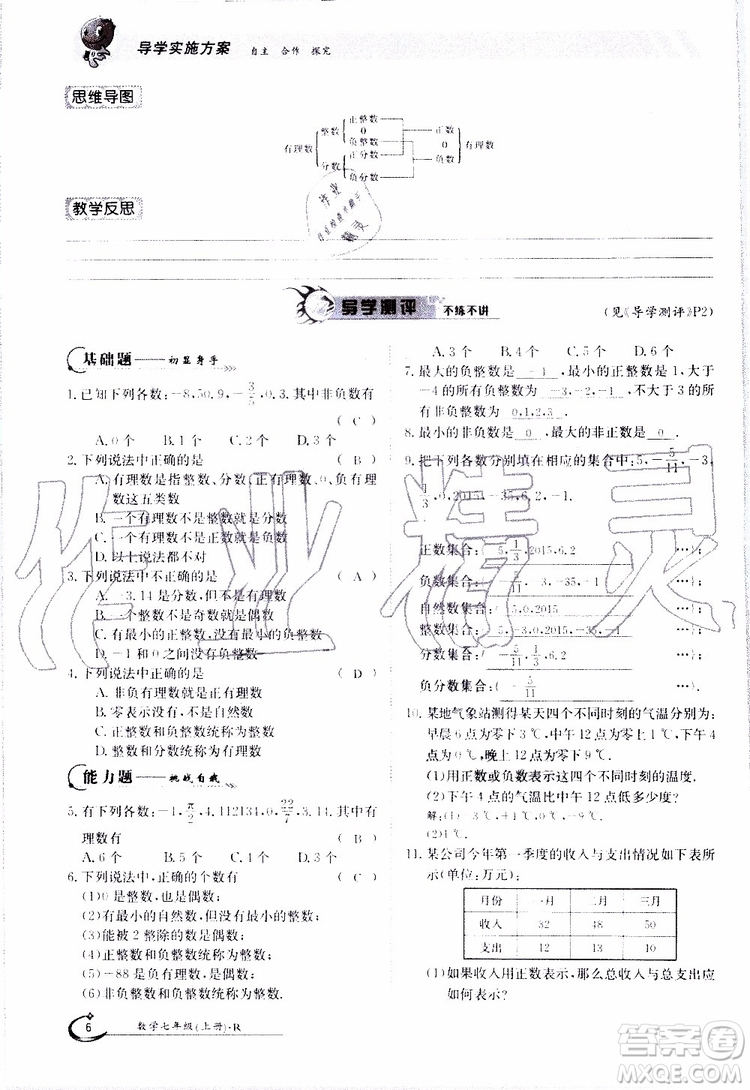 导学实施方案 自主 合作 探究
思维导图
有理数 整数 正整数 0 负整数 分数 正分数 负分数 正数 0 负数 有理数
教学反思
导学测评 不练不讲
(见《导学测评》P2)
基础题——初显身手
1.已知下列各数:-8,50.9,-3/5,0,3.其中非负数有
( C )
A.0个 B.2个 C.3个 D.3个
2.下列说法中正确的是 ( B )
A.有理数是指整数、分数、正有理数、0、负有理数这五类数
B.一个有理数不是整数就是分数
C.一个有理数不是正数就是负数
D.以上说法都不对
3.下列说法中不正确的是 ( A )
A.-3.14是分数,但不是有理数
B.一个整数不是奇数就是偶数
C.有最小的正整数,没有最小的负整数
D.-1和0之间没有负整数
4.下列说法中正确的是 ( D )
A.非负有理数就是正有理数
B.零表示没有,不是自然数
C.正整数和负整数统称为整数
D.整数和分数统称为有理数
能力题——挑战自我
5.有下列各数:-1,π/2,4.112134,0,22/7,3.14,其中有
理数有 ( B )
A.6个 B.5个 C.4个 D.3个
6.下列说法中,正确的个数有 ( C )
(1)0是整数,也是偶数;
(2)有最小的自然数,但没有最小的整数;
(3)能被2整除的数是偶数;
(4)正整数和负整数统称为整数;
(5)-88是负有理数,也是负整数;
(6)非负整数和负分数统称为有理数.
A.3个 B.5个 C.4个 D.6个
7.最大的负整数是 -1 ,小于3的正整数且大于
-4的所有负整数为 -3,-2,-1 ,不大于3的非负整数为 0,1,2,3 .
8.最小的非负数是 0 ,最大的非正数是 0 .
9.把下列各数分别填在相应的集合中:5,-5/11,-3,
1/3,0,2015,-35,6.2,-1.
正数集合:{ 5,1/3,2015,6.2 …};
负数集合:{ -5/11,-3,-35,-1 …};
自然数集合:{ 5,0,2015 …};
整数集合:{ 5,-3,0,2015,-35,-1 …};
分数集合:{ -5/11,1/3,6.2 …};
负分数集合:{ -5/11 …}.
10.某地气象站测得某天四个不同时刻的气温分别为:
早晨6点为零下3℃,中午12点为零上1℃,下午4点为0℃,晚上12点为零下9℃.
(1)用正数或负数表示这四个不同时刻的温度.
(2)下午4点的气温比中午12点低多少度?
解:(1)-3℃,+1℃,0℃,-9℃.
(2)1℃.
11.某公司今年第一季度的收入与支出情况如下表所
示(单位:万元):
月份 一月 二月 三月
收入 32 48 50
支出 12 13 10
(1)如果收入用正数表示,那么总收入与总支出应
如何表示?
6 数学七年级(上册)·R
作业精灵